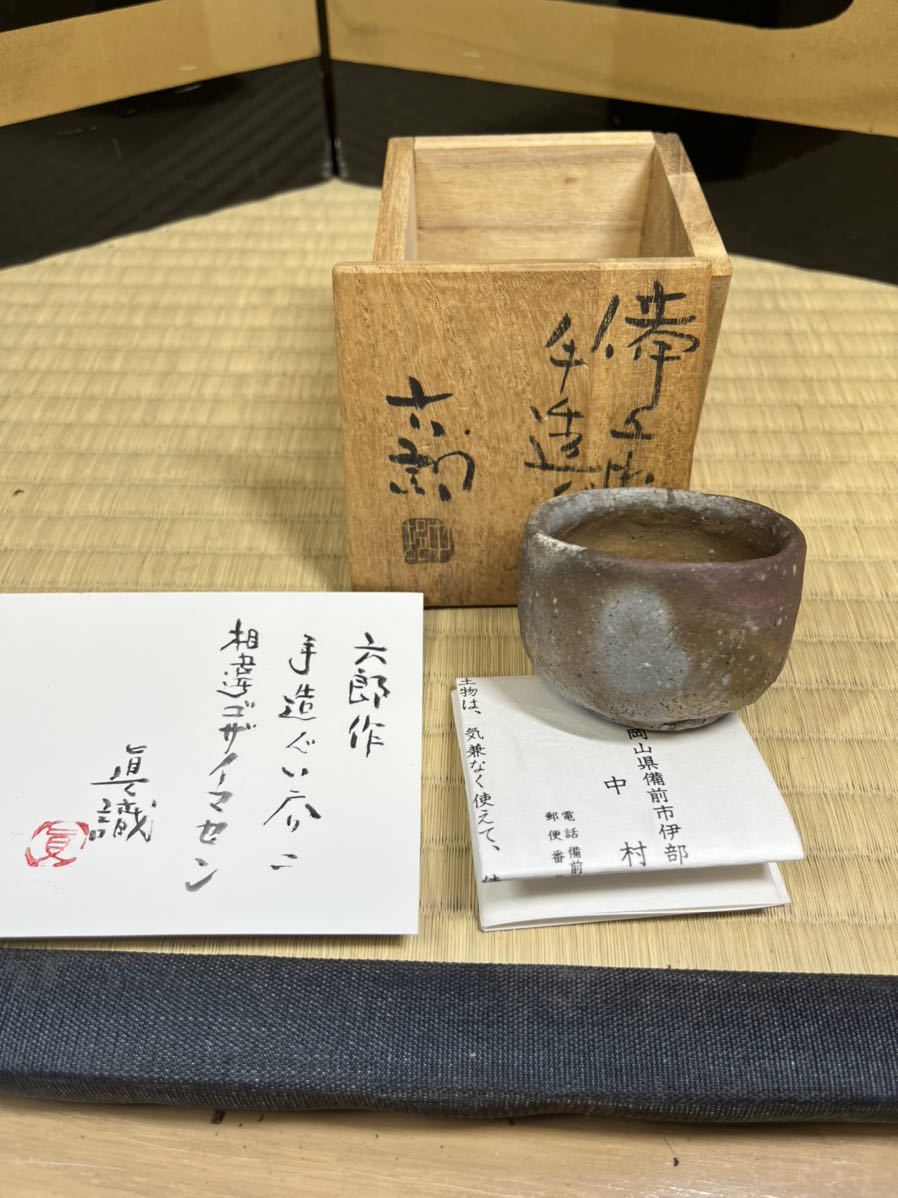 備前
手造
六郎
六郎作
手造ぐい呑ニ
相違ゴザイマセン
眞識
眞
土物は、気兼なく使えて、
岡山県備前市伊部
中村
電話 備前
郵便番